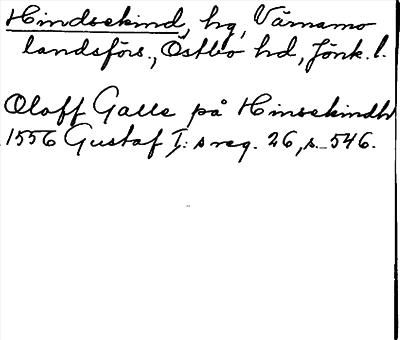 Hindsekind, hg, Värnamo
landsförs., Östbo hd, Jönk. l.
Oloff Galle på Hinsekindh
1556 Gustaf I:s reg. 26, s. 546.